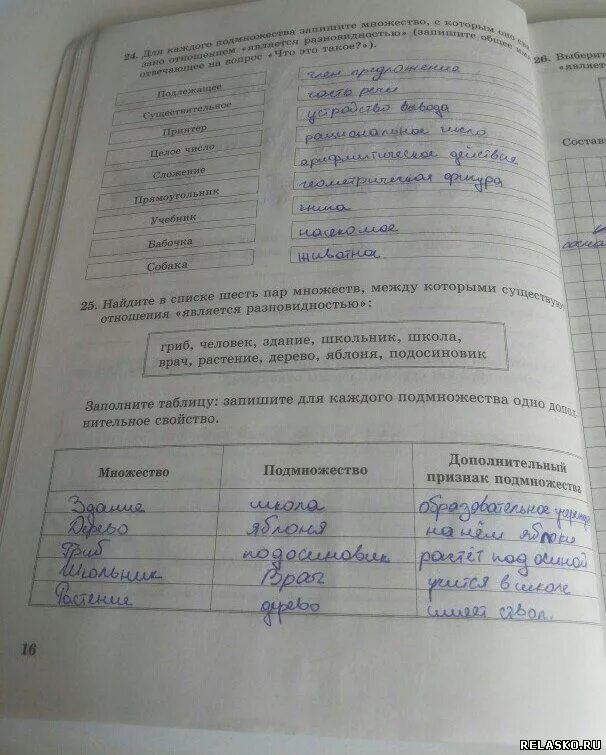 24. Для каждого подмножества запишите множество, с которым оно свя
зано отношением «является разновидностью» (запишите общее имя,
отвечающее на вопрос «Что это такое?»).
Подлежащее
член предложения
Существительное
часть речи
Принтер
устройство вывода
Целое число
рациональное число
Сложение
арифмитическое действие
Прямоугольник
геометрическая фигура
Учебник
книга
Бабочка
насекомое
Собака
животное
25. Найдите в списке шесть пар множеств, между которыми существую
отношения «является разновидностью»:
гриб, человек, здание, школьник, школа,
врач, растение, дерево, яблоня, подосиновик
Заполните таблицу: запишите для каждого подмножества одно допол-
нительное свойство.
Множество Подмножество Дополнительный
признак подмножества
Здание школа образовательное
Дерево яблоня на нём яблоки
Гриб подосиновик растёт под осиной
Школьник Врач учится в школе
Растение дерево имеет ствол.
16
26. Выберит
«являет
Состав
RELASKO.RU